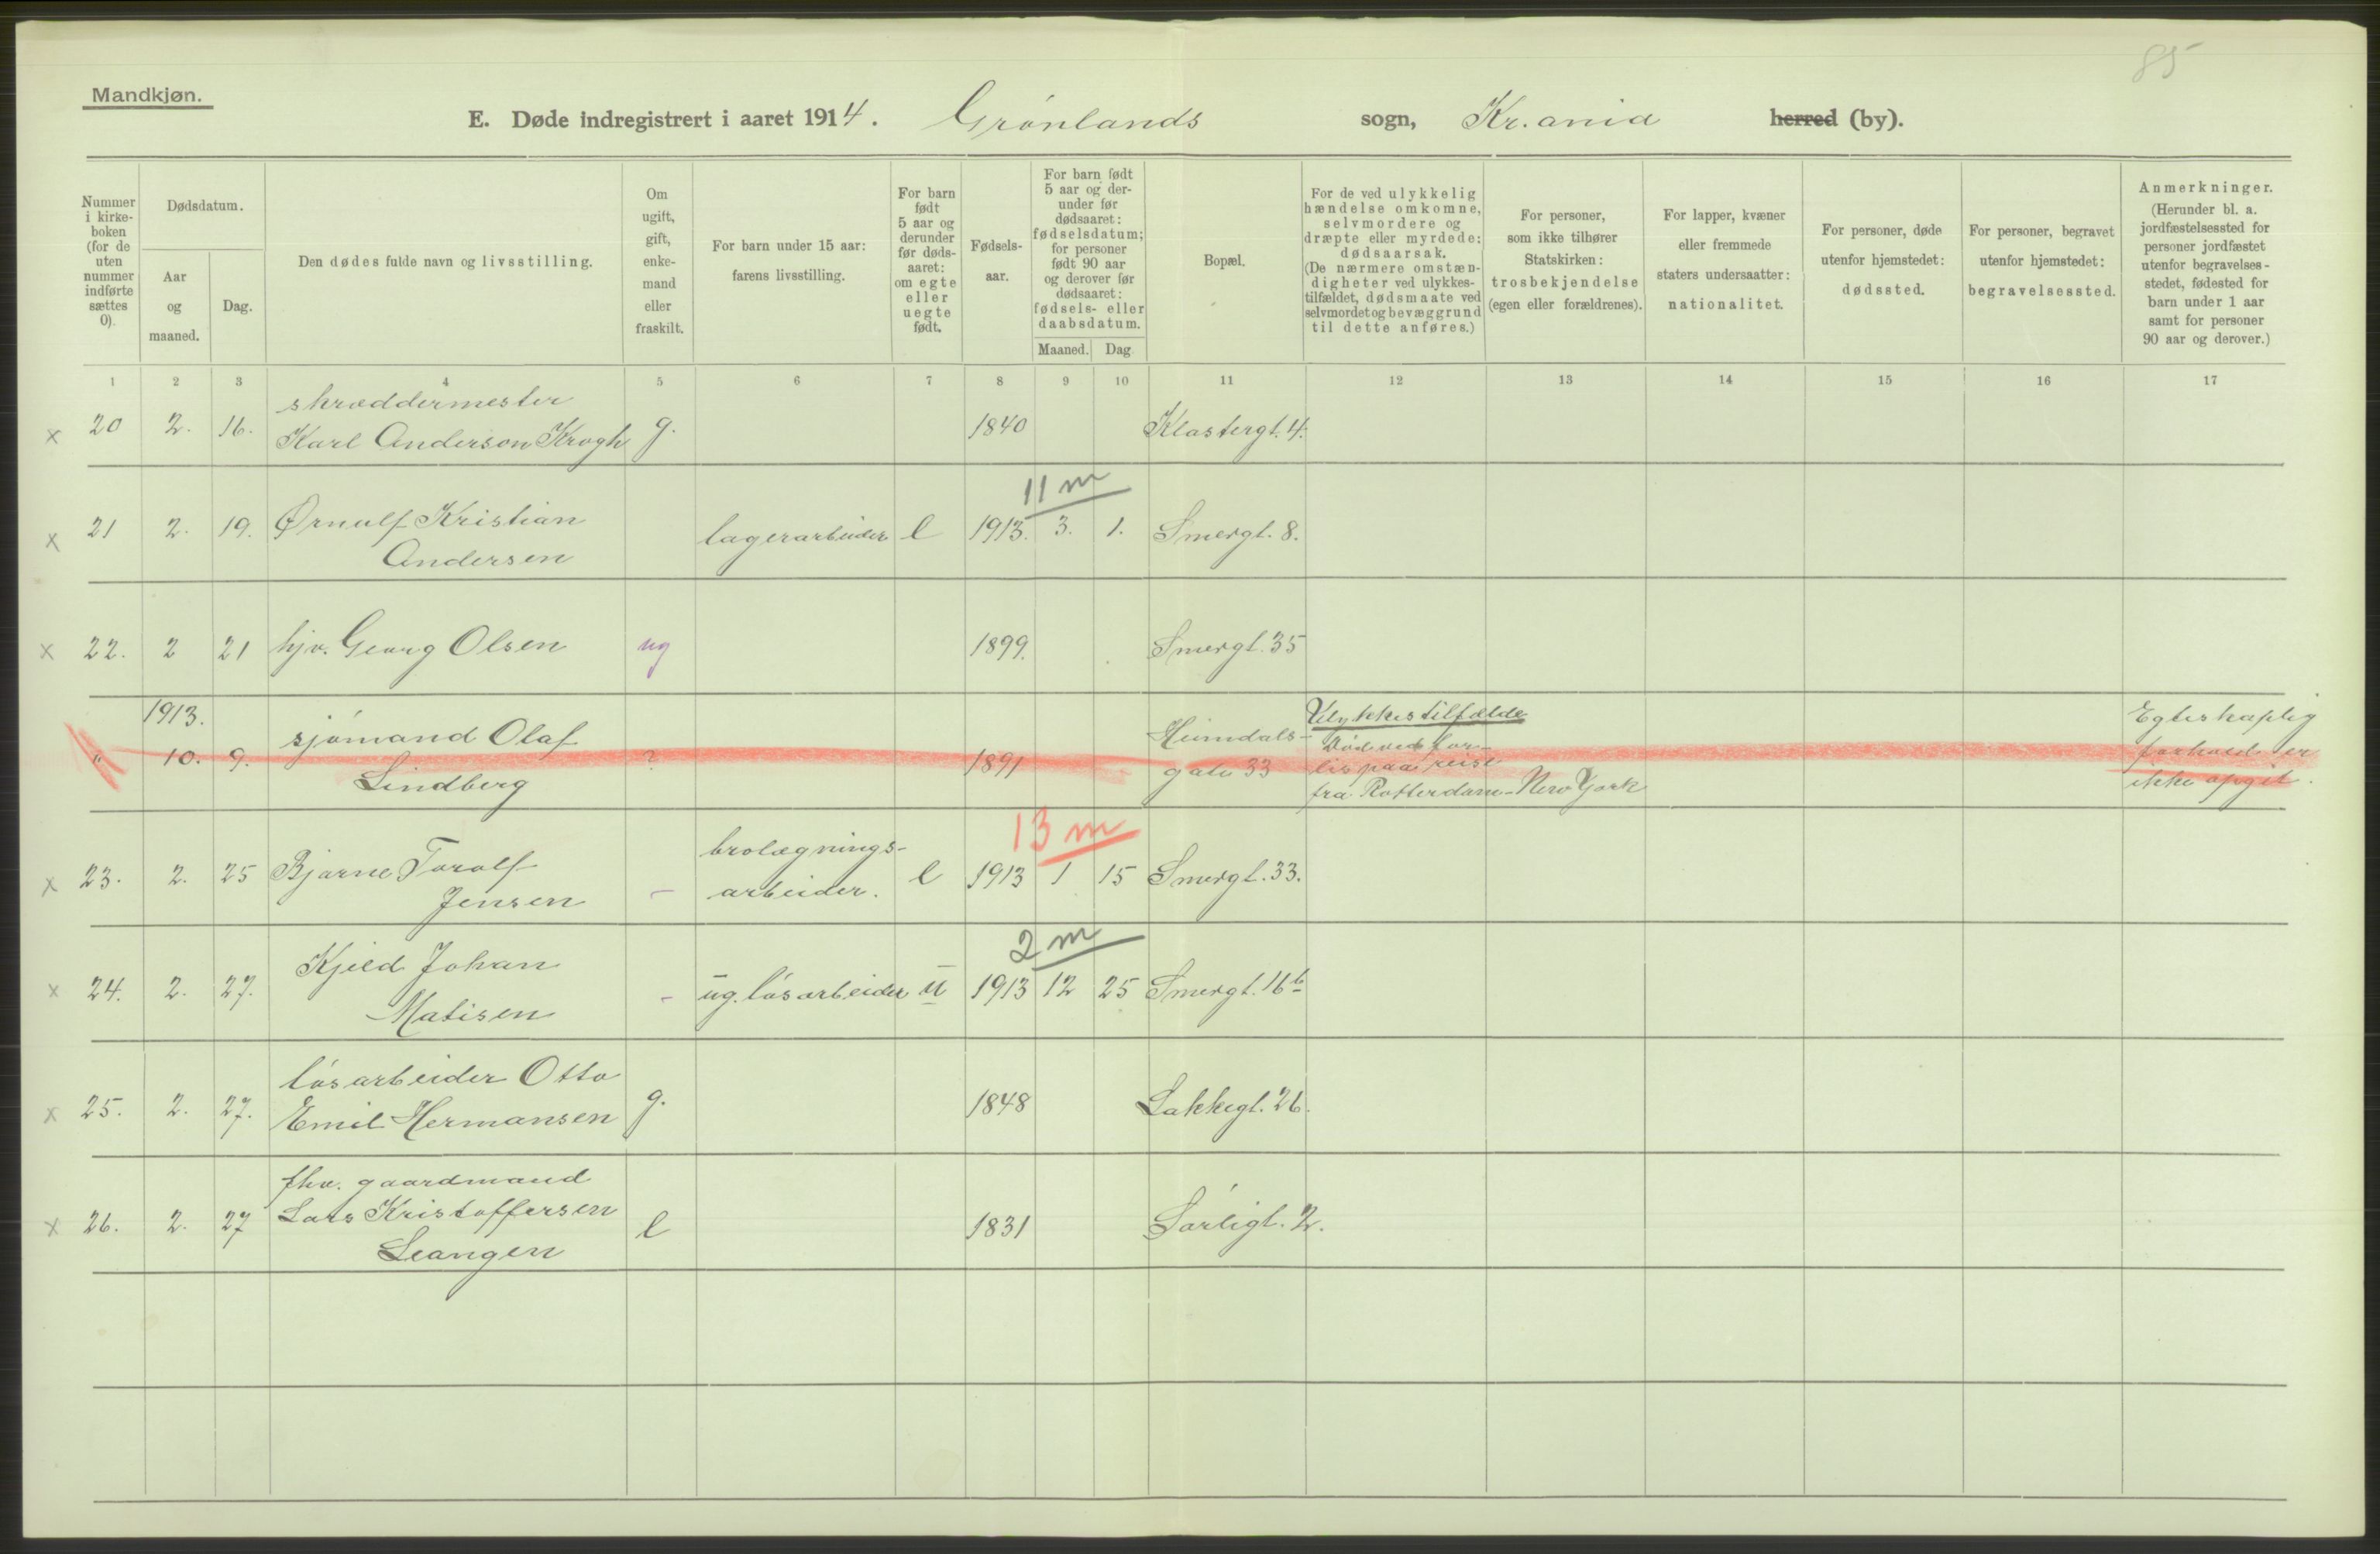 85
Mandkjøn.
E. Døde indregistrert i aaret 1914. Grønlands sogn, Kr.ania herred (by).
Nummer i kirke-boken (for de uten nummer indførte sættes 0).
Dødsdatum.
Aar og maaned.
Dag.
Den dødes fulde navn og livsstilling.
Om ugift, gift, enke-mand eller fraskilt.
For barn under 15 aar: farens livsstilling.
For barn født 5 aar og derunder før døds-aaret: om egte eller uegte født.
Fødsels-aar.
For barn født 5 aar og der-under før dødsaaret: fødselsdatum; for personer født 90 aar og derover før dødsaaret: fødsels- eller daabsdatum.
Maaned.
Dag
Bopæl.
For de ved ulykkelig hændelse omkomne, selvmordere og dræpte eller myrdede: dødsaarsak. (De nærmere omstæn-digheter ved ulykkes-tilfældet, dødsmaate ved selvmordet og bevæggrund til dette anføres.)
For personer, som ikke tilhører Statskirken: trosbekjendelse (egen eller forældrenes).
For lapper, kvæner eller fremmede staters undersaatter: nationalitet.
For personer, døde utenfor hjemstedet: dødssted.
For personer, begravet utenfor hjemstedet: begravelsessted.
Anmerkninger. (Herunder bl. a. jordfæstelsessted for personer jordfæstet utenfor begravelses-stedet, fødested for barn under 1 aar samt for personer 90 aar og derover.)
1 2 3 4 5 6 7 8 9 10 11 12 13 14 15 16 17
skræddermester
x 20 2. 16. Karl Anderson Krogh g. 1840 Klostergt. 4.
11 m
x 21 2. 19. Ørnulf Kristian lagerarbeider e 1913. 3. 1. Smergt. 8.
Andersen
x 22. 2 21 hjv. Georg Olsen ug 1899. Smergt. 35
1913. sjømand Olaf Heimdals- Ulykkestilfælde Egteskaplig
" 10. 9. ? 1891 Død ved for- forhold er
Lindberg gate 33 lis paa reise ikke opgit.
fra Rotterdam-New York
13 m
brolægnings-
x 23. 2. 25 Bjarne Toralf e 1913 1 15 Smergt. 33.
Jensen - arbeider.
2 m
Kjeld Johan
x 24. 2. 27. - ug. løsarbeider u 1913 12 25 Smergt. 16b
Matisen
løsarbeider Otto
x 25. 2. 27. Emil Hermansen g. 1848 Lakkegt. 26.
fhv. gaardmand
x 26. 2. 27 Lars Kristoffersen e 1831 Sørligt. 2.
Leangen